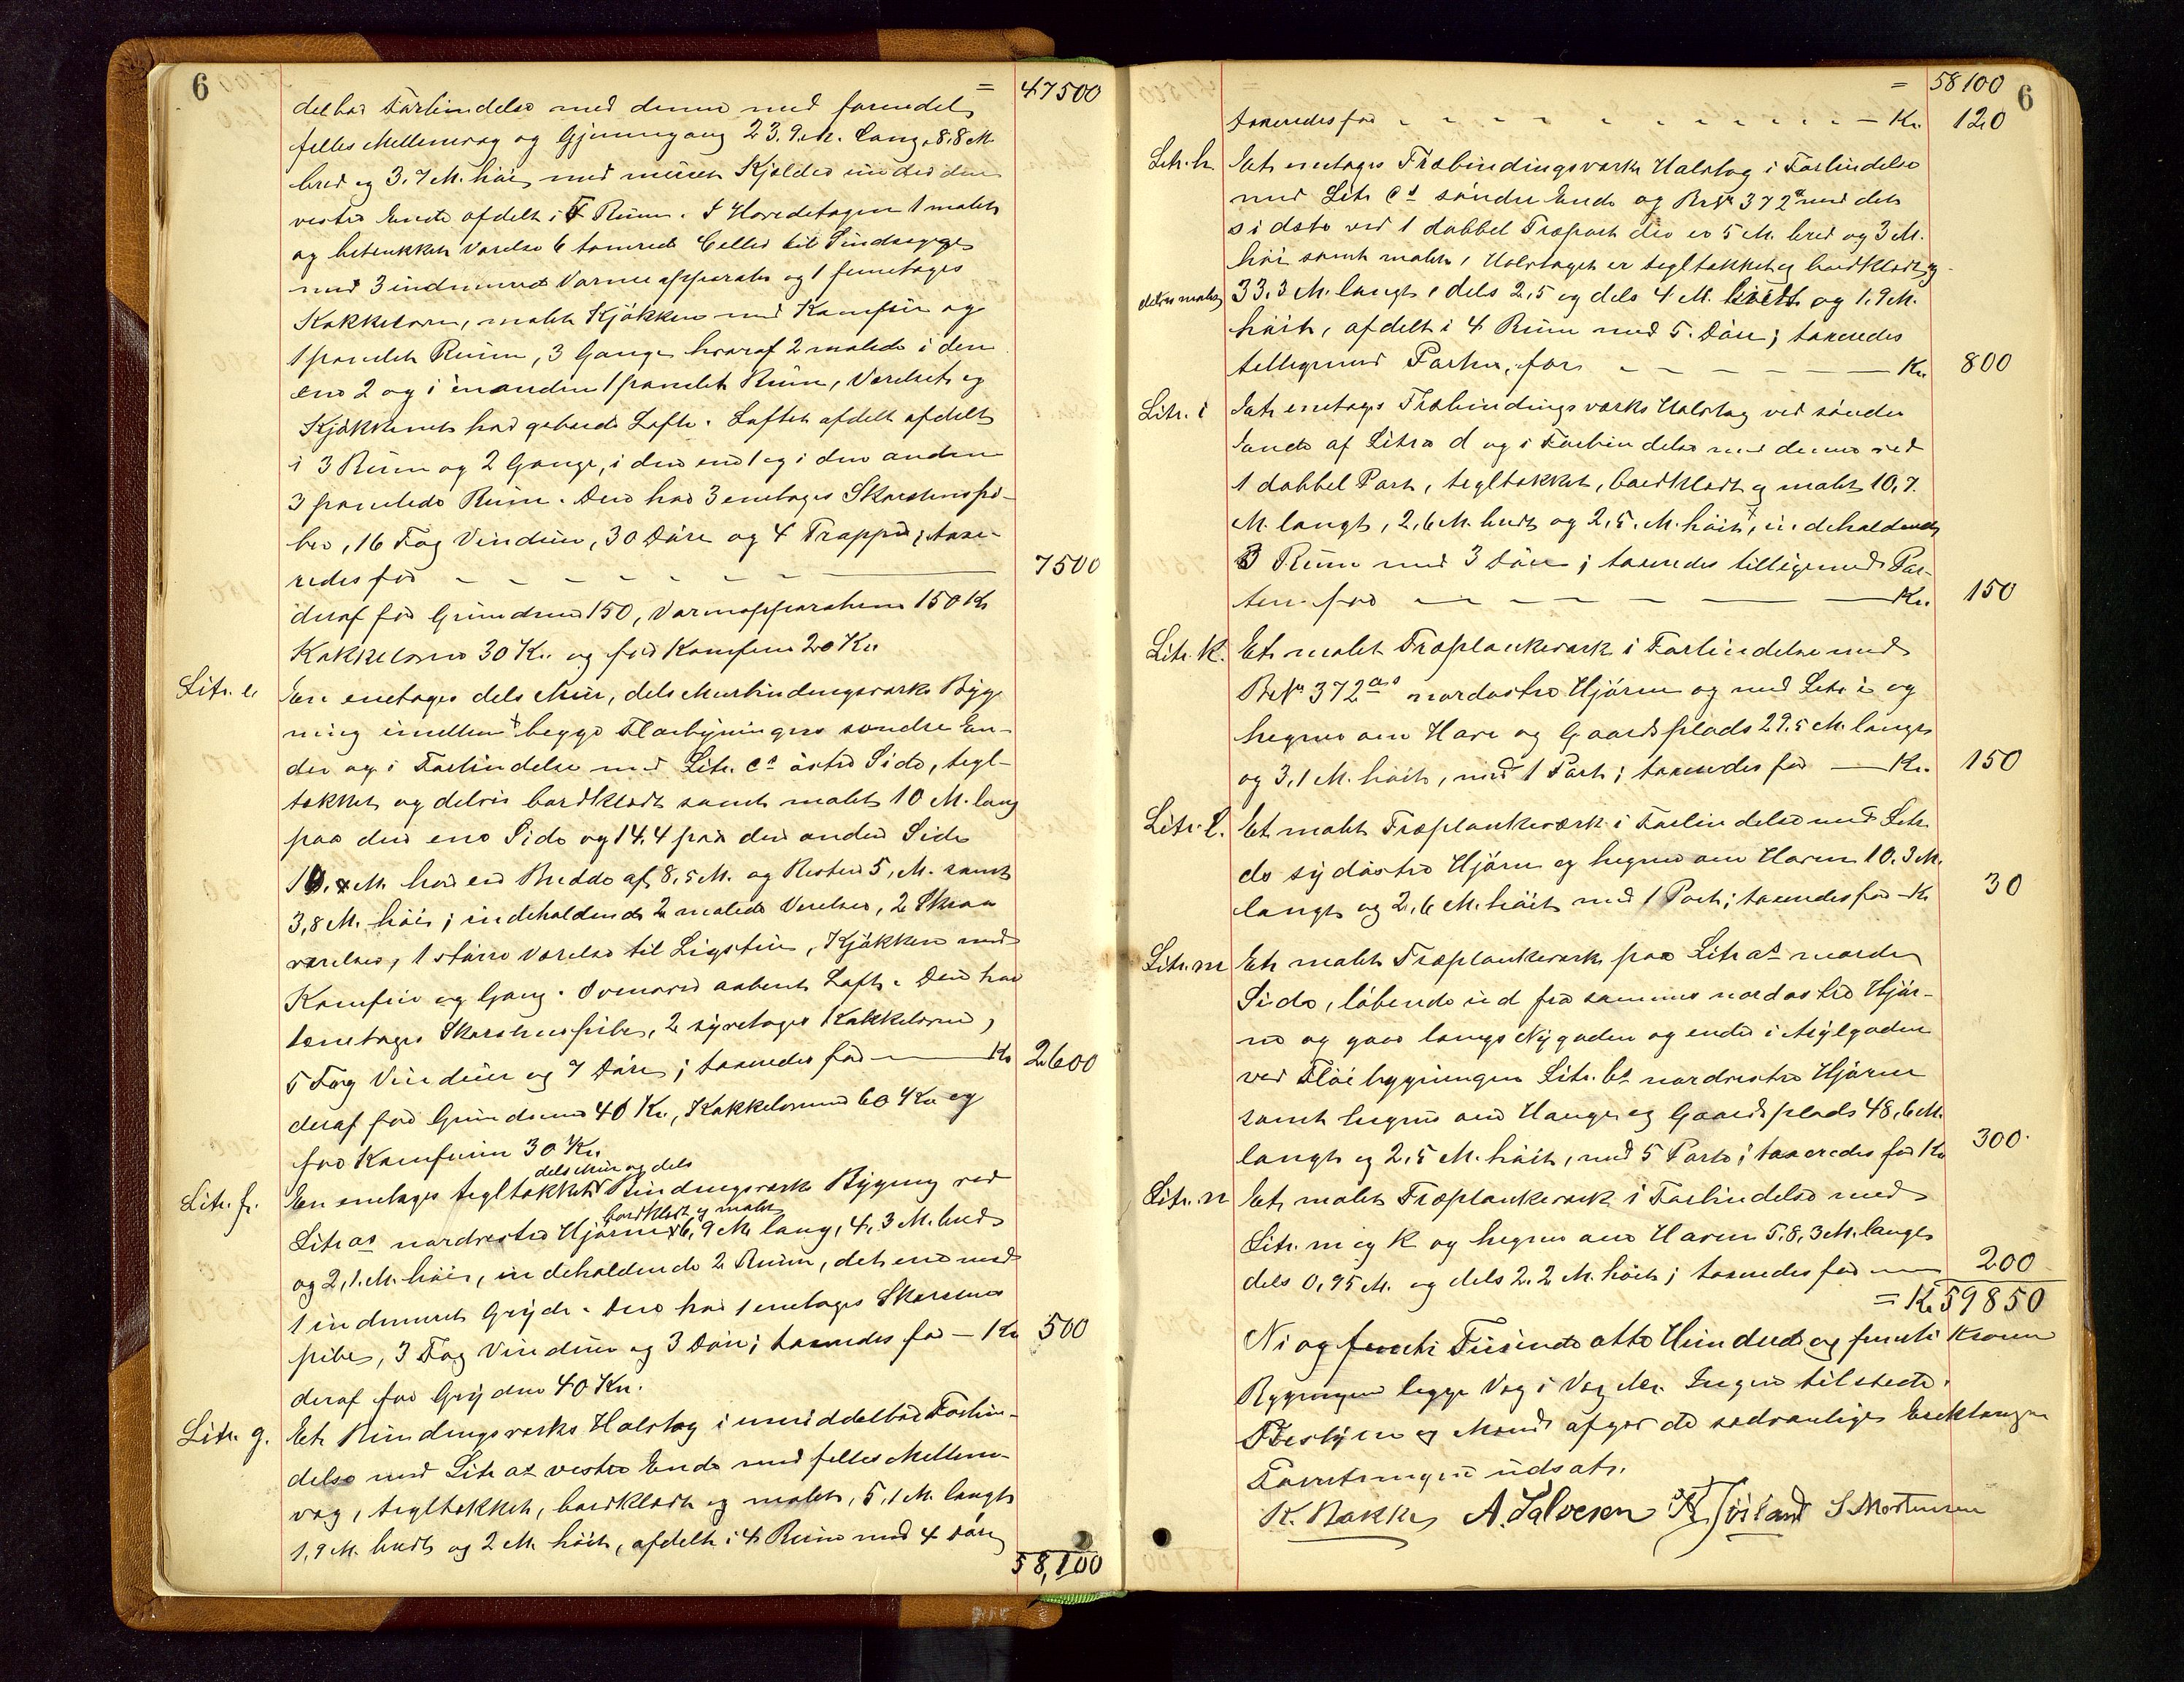 6
= 47500
delbar Forbindelse med denne med forandet
felles Mellemvæg og Gjennegang 23.9. M. lang, 8.8 M.
bred og 3.7 M. høi, med muret Kjelder under den
vestre Ende afdelt i 5 Rum. I Hovedetagen 1 malet
og betrukket Værelse 6 tømrede Celler til Sindssyge
med 3 indmurede Varmeapparater og 1 femetages
Kakkelovn, malet Kjøkken med Komfur og
1 panelet Rum, 3 Gange hvoraf 2 malede i den
ene 2 og i en anden 1 panelet Rum, Værelset og
Kjøkkenet har gibsede Lofte. Loftet afdelt afdelt
i 3 Rum og 2 Gange, i den ene 1 og i den anden
3 panelede Rum. Den har 3 enetages Skorstenspi-
ber, 16 Fag Vinduer, 30 Døre og 4 Trapper; taxe-
redes for 7500
deraf for Grundmur 150, Varmeapparaterne 150 Kr
Kakkelovne 30 Kr. og for Komfuren 20 Kr.
Litr. e. En enetages dels Mur, dels Murbindingsværks Byg-
ning imellem begge Fløibygningers søndre En-
der og i Forbindelse med Litr. cs østre Side, tegl-
tækket og delvis bordklædt samt malet 10 M. lang
paa den ene Side og 14.4 paa den anden Side
10.4 M. har en Bredde af 8,5 M. og Resten 5, M. samt
3,8 M. høi; indeholdende 2 malede Værelser, 2 Skraa
værelser, 1 større Værelse til Ligstue, Kjøkken med
Komfur og Gang. Ovenover aabent Loft. Den har
1 enetages Skorstenspibe, 2 syvetages Kakkelovne,
5 Fag Vinduer og 7 Døre; taxeredes for Kr 2600
deraf for Grundmur 40 Kr., Kakkelovne 60 Kr. og
for Komfuren 30 Kr.
dels Mur og dels
Litr. f. En enetages tegltækket Bindingsværks Bygning ved
bordklædt og malet
Litr as nordvestre Hjørne 6,9 M. lang, 4,3 M. bred
og 2,1. M. høi, indeholdende 2 Rum, det ene med
1 indmuret Gryde. Den har 1 enetages Skorstens
pibe, 3 Fag Vinduer og 3 Døre; taxeredes for Kr 500
deraf for Gryden 40 Kr.
Litr. g. Et Bindingsværks Halvtag i umiddelbar Forbin-
delse med Litr as vestre Ende med felles Mellem-
væg, tegltækket, bordklædt og malet, 5,1 M. langt
1,9 M. bredt og 2 M. høit, afdelt i 4 Rum med 4 Døre
58,100
6
= 58100
taxeredes for Kr. 120
Litr. h. Et enetages Træbindingsværks Halvtag i Forbindelse
med Litr cs søndre Ende og BrNr 372a med det
sidste ved 1 dobbel Træport der er 5 M. bred og 3 M.
høi samt malet, Halvtaget er tegltækket og bordklædt og
delvis malet 33.3 M. langt, dels 2,5 og dels 4 M. bredt og 1,9 M.
høit, afdelt i 4 Rum med 5. Døre; taxeredes
tilligemed Porten, for Kr. 800
Litr. i Et enetages Træbindingsværks Halvtag ved søndre
Ende af Litra d og i Forbindelse med denne ved
1 dobbel Port, tegltækket, bordklædt og malet 10,7.
M. langt, 2,6 M. bredt og 2,5. M. høit, indeholdende
3 Rum med 3 Døre; taxeredes tilligemed Por-
ten for Kr. 150
Litr. k. Et malet Træplankeværk i Forbindelse med
BrNr 372as nordøstre Hjørne og med Litr i og
hegner om Have og Gaardsplads 29.5 M. langt
og 3,1 M. høit, med 1 Port; taxeredes for Kr. 150
Litr. l. Et malet Træplankeværk i Forbindelse med Litr.
ds sydøstre Hjørne og hegner om Haven 10.3 M.
langt og 2,6 M. høit med 1 Port; taxeredes for Kr 30
Litr. m Et malet Træplankeværk paa Litr as nordre
Side, løbende ud fra sammes nordøstre Hjør-
ne og gaar langs Nygaden og ender i Asylgaden
ved Fløibygningen Litr. bs nordvestre Hjørne
samt hegner om Hauge og Gaardsplads 48,6 M.
langt og 2,5 M. høit, med 5 Porte; taxeredes for Kr 300.
Litr. n Et malet Træplankeværk i Forbindelse med
Litr. m og k og hegner om Haven 58,3 M. langt
dels 0,95 M. og dels 2.2 M. høit; taxeredes for 200
= Kr 59850
Ni og femti Tusinde otte Hundrede og femti Kroner
Bygningen ligge Væg i Væg. Ingen tilstede.
Bestyrer og Mænd afgav de sædvanlige Erklæringer
Forretningen udsat.
K. Bakke A. Salvesen S Mortensen